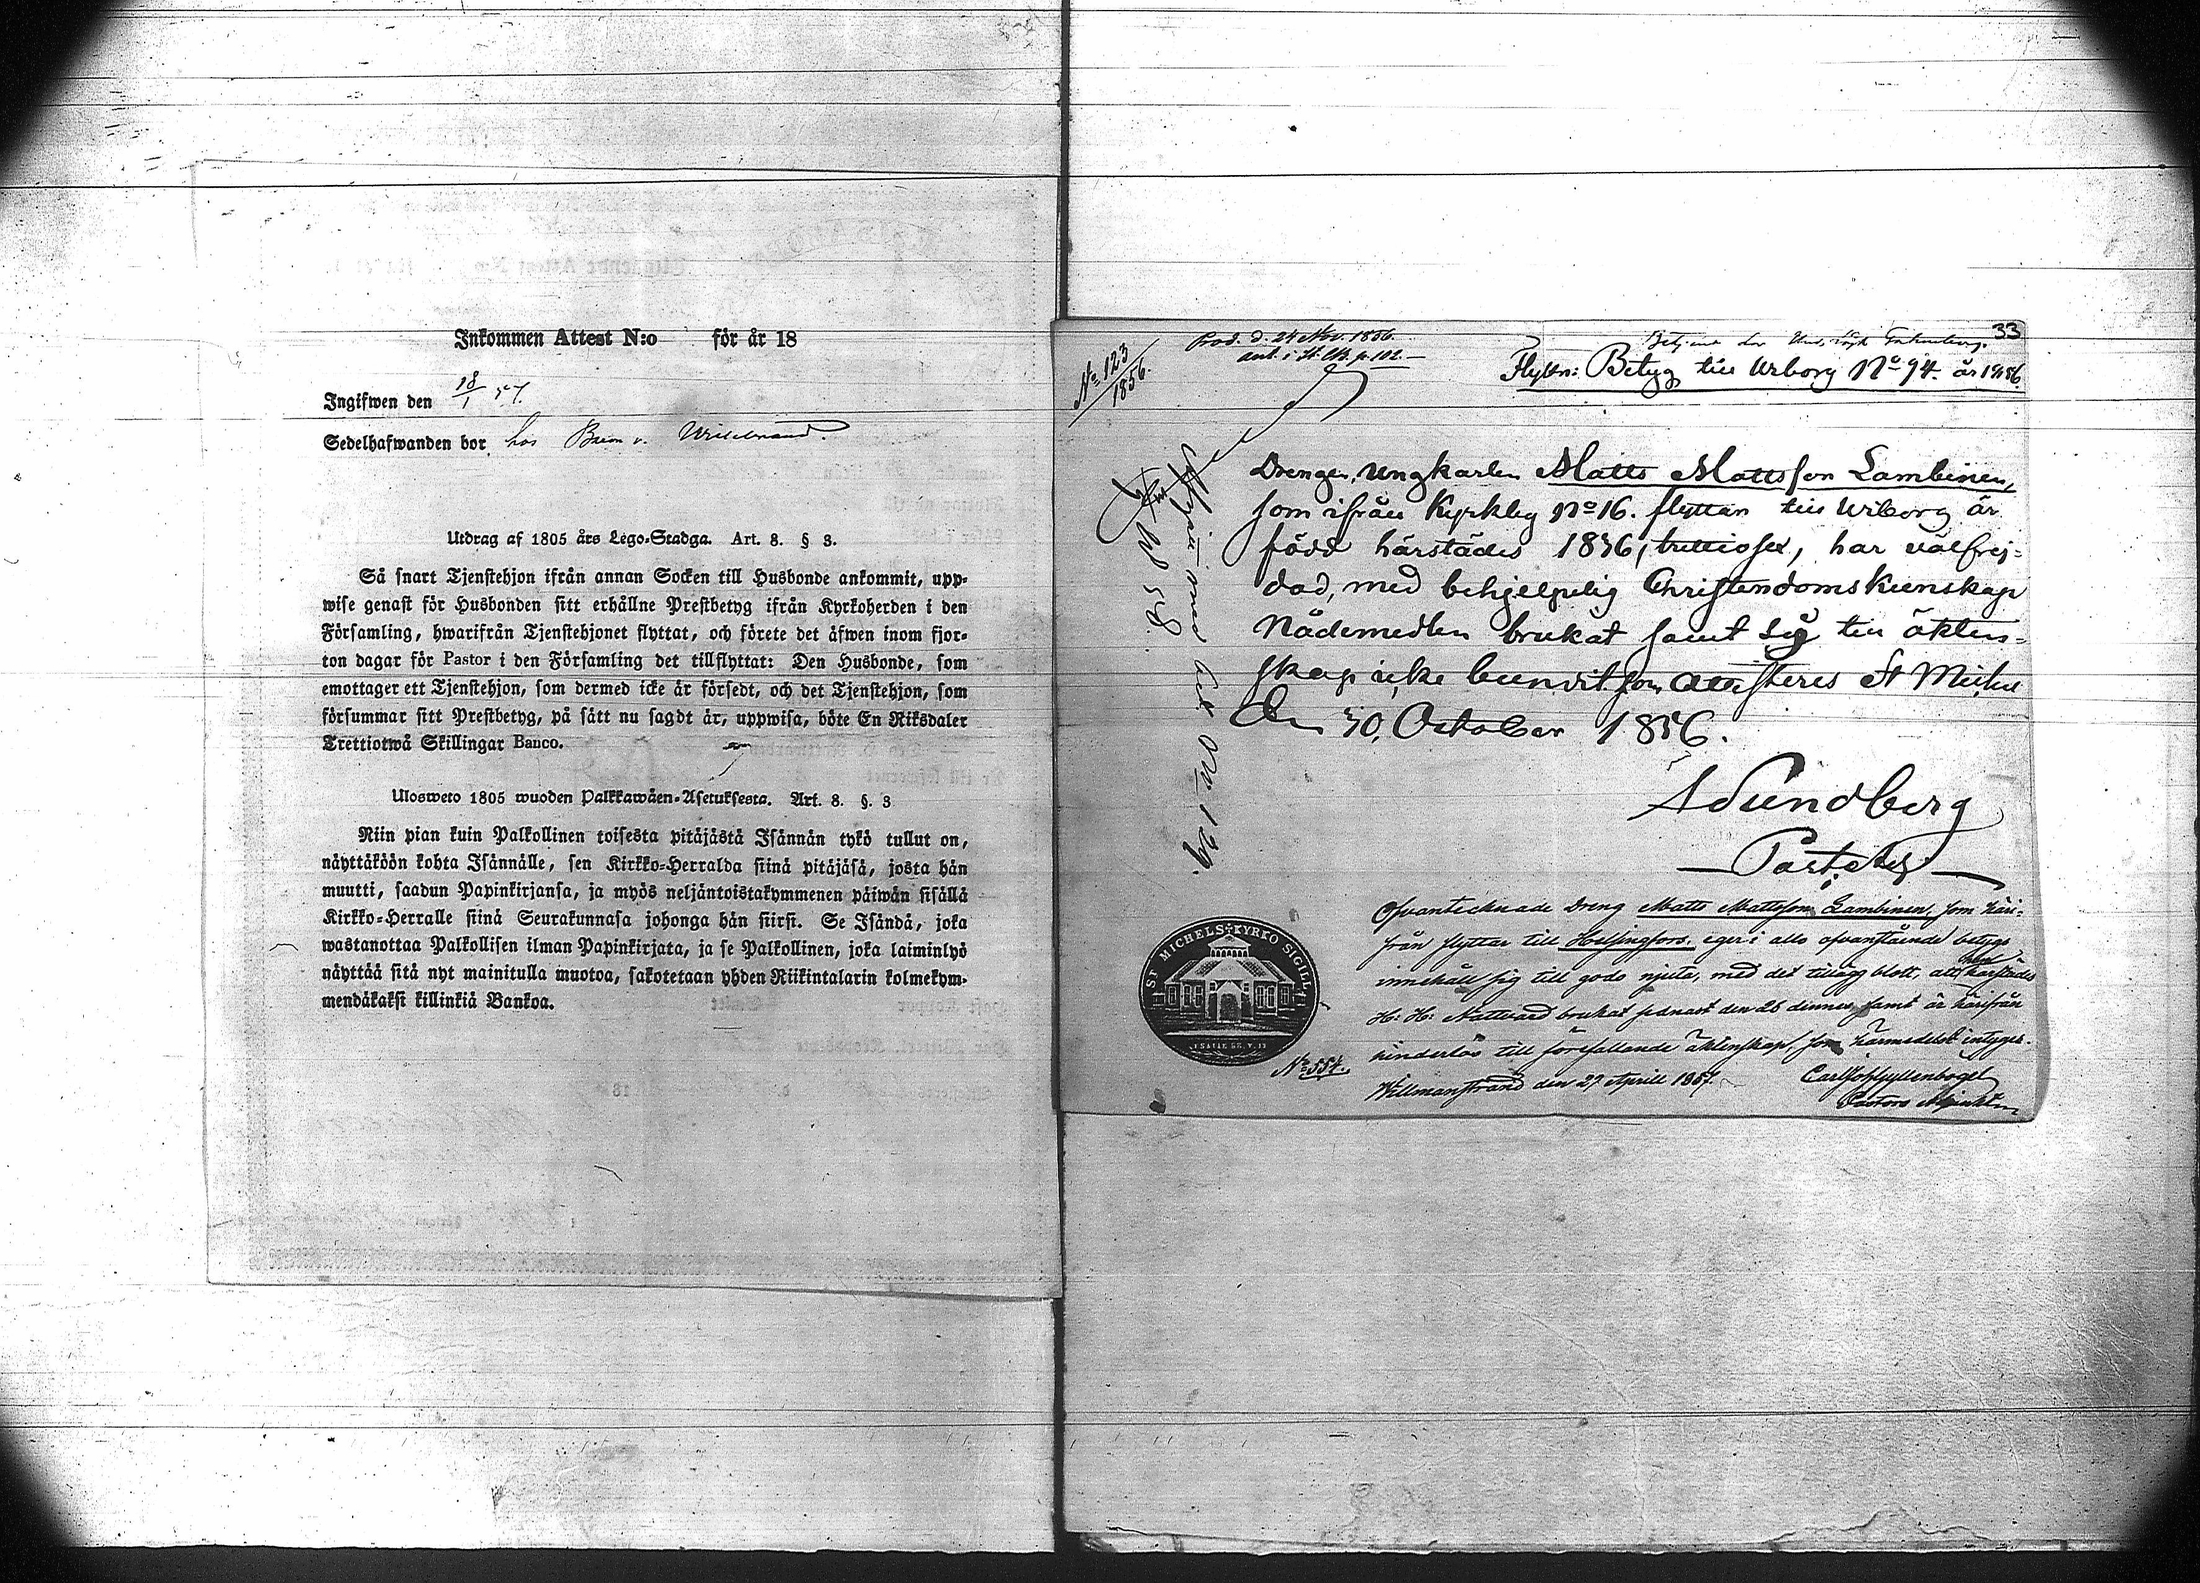 Inkommen Attest N:o för år 18
Ingifwen den 18/1 57.
Sedelhafwanden bor hos Baron v. Willebrand.
Utdrag af 1805 års Lego-Stadga. Art. 8. § 3.
Så snart Tjenstehjon ifrån annan Socken till Husbonde ankommit, upp-
wise genast för Husbonden sitt erhållne Prestbetyg ifrån Kyrkoherden i den
Församling, hwarifrån Tjenstehjonet flyttat, och förete det äfwen inom fjor-
ton dagar för Pastor i den Församling det tillflyttat: Den Husbonde, som
emottager ett Tjenstehjon, som dermed icke är försedt, och det Tjenstehjon, som
försummar sitt Prestbetyg, på sätt nu sagdt är, uppwisa, böte En Riksdaler
Trettiotwå Skillingar Banco.
Ulosweto 1805 wuoden Palkkawäen-Asetuksesta. Art. 8. §. 3
Niin pian kuin Palkollinen toisesta pitäjästä Isännän tykö tullut on,
näyttäköön kohta Isännälle, sen Kirkko-Herralda siinä pitäjäsä, josta hän
muutti, saadun Papinkirjansa, ja myös neljäntoistakymmenen päiwän sisällä
Kirkko-Herralle siinä Seurakunnasa johonga hän siirsi. Se Isändä, joka
wastanottaa Palkollisen ilman Papinkirjata, ja se Palkollinen, joka laiminlyö
näyttää sitä nyt mainitulla muotoa, sakotetaan yhden Riikintalarin kolmekym-
mendäkaksi killinkiä Bankoa.
33
No 123
1856.
Prod. d. 24 Nov. 1856.
ant. i St. Kb. p. 102.
Flyttn: Betyg till Wiborg No 94. år 1856
Drengen, Ungkarlen Matts Mattsson Lambinen,
som ifrån Kyrkby No 16. flyttar till Wiborg är
född härstädes 1836, trettiosex, har välfrej-
dad, med behjelpelig Christendoms kunskap
Nådemedlen brukat samt sig till äkten-
skap icke bundit som attesteras St Michel
den 30. October 1856.
A Sundberg
Past:
Ofvantecknade Dreng Matts Mattsson Lambinen, som häri-
från flyttar till Helsingfors, eger i allo ofvanstående betygs
innehåll sig till godo njuta, med det tillägg blott, att han härstädes
H: H: Nattvard brukat sednast den 26 dennes, samt är härifrån
hinderlös till förefallande äktenskap, som härmedelst intygas.
Willmanstrand den 27 Aprill 1857.
Pastors Adjunkt
ST MICHELS KYRKO SIGILL
No 554.